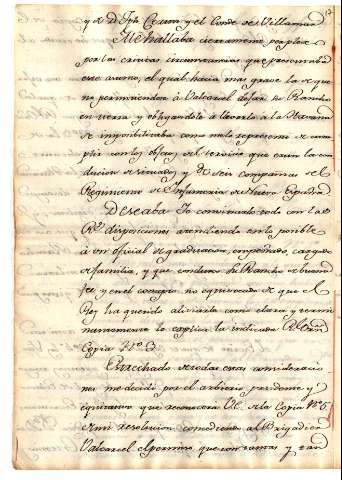 y a D. Jph. Cexon y el Conde de Villamar
Me hallaba ciertamente perplexo
por las críticas circunstancias que presentaba
este asunto, el qual hacía mas grave la de que
no permitiendo á Valcarcel dejar su Rancho
en tierra y obligandole á llevarlo a la Havana
se imposibilitaba como me lo representó de cum-
plir con los objetos del servicio que exixia la con-
ducion de situados, y de seis compañias del
Regimiento de Infanteria de Nueva España
Deseaba Yo convinarlo todo con las
Rs. disposiciones atendiendo en lo posible
á un oficial de graduacion, empeñado, cargado
de familia, y que condujo su Rancho de buena
fee y en el concepto no equivocado de que el
Rey ha querido aliviarle como clara y termi-
nantemente lo explica la indicada Rl. Orden
Copia No. 3.
Estrechado de todas estas consideracio-
nes me decidí por el arbitrio prudente y
equitativo que reconocera VE. de la Copia No. 5.
de mi resolucion concediendo al Brigadier
Valcarcel el permiso que con tantas y tan